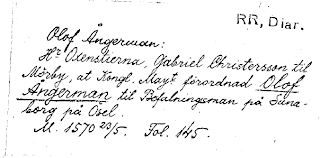 RR, Diar.
Olof Ångerman:
Hr Oxenstierna, Gabriel Christersson til
Mörby, at Kongl. Mayt förordnad Olof
Angerman til Befalningsman på Suna-
borg på Ösel.
M. 1570 23/5. Fol. 145.